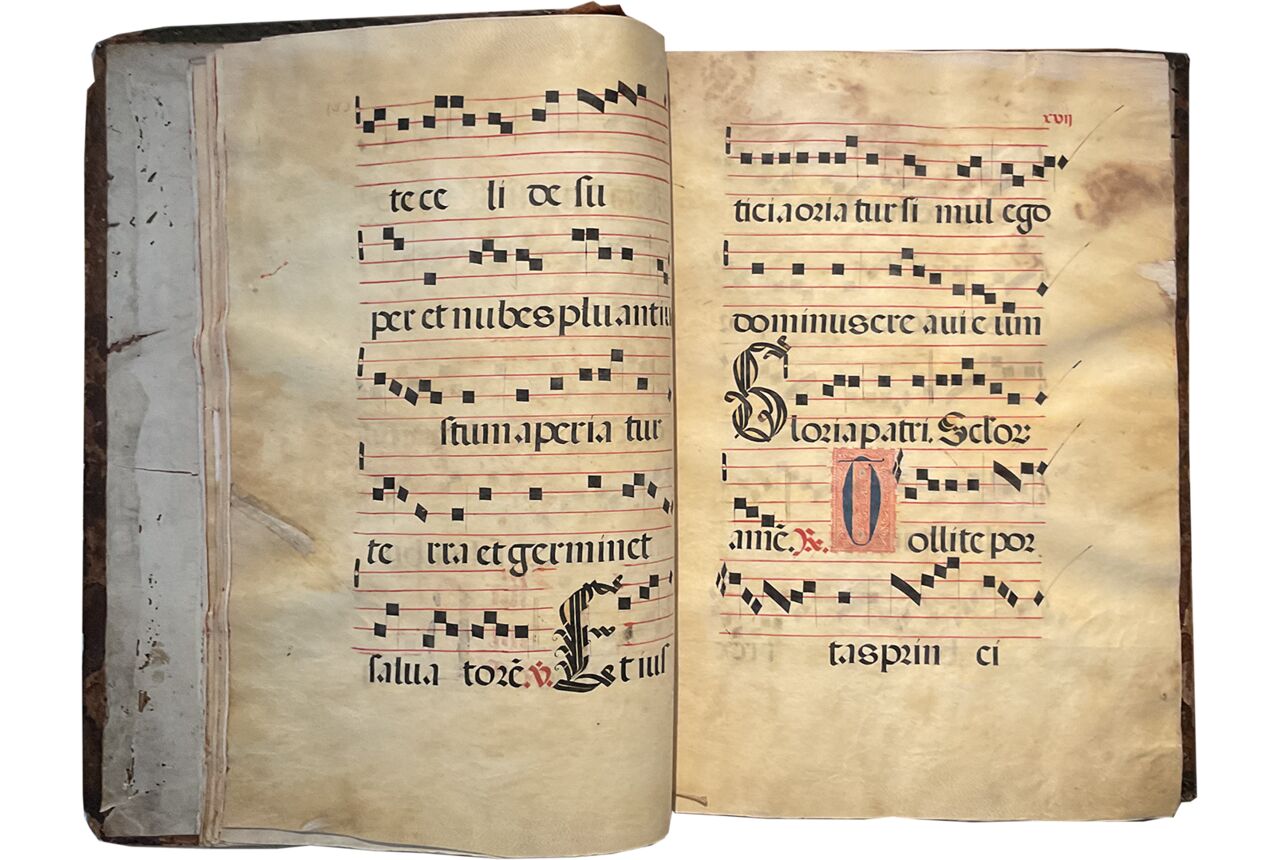 te ce li de su
per et nubes pluant iu
stum aperia tur
te rra et germinet
salua torē. ℣. Et ius
xvij
ticia oria tur si mul ego
dominus cre aui e um
Gloria patri. Sclor
amē. ℟. Tollite por
tas prin ci